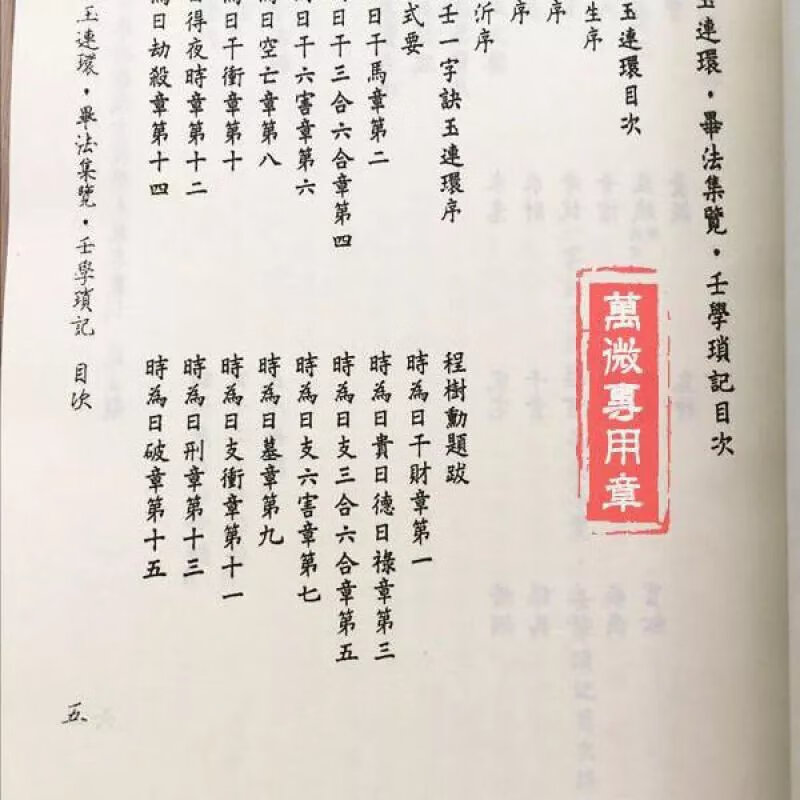 玉連環・畢法集覽・壬學瑣記目次
萬微專用章
玉連環目次
生序
序
序
沂序
式要
壬一字訣玉連環序
程樹勳題跋
時為日干財章第一
日干馬章第二
時為日貴日德日祿章第三
日干三合六合章第四
時為日支三合六合章第五
日干六害章第六
時為日支六害章第七
日空亡章第八
時為日墓章第九
為日干衝章第十
時為日支衝章第十一
得夜時章第十二
時為日刑章第十三
為日劫殺章第十四
時為日破章第十五
玉連環・畢法集覽・壬學瑣記 目次
五